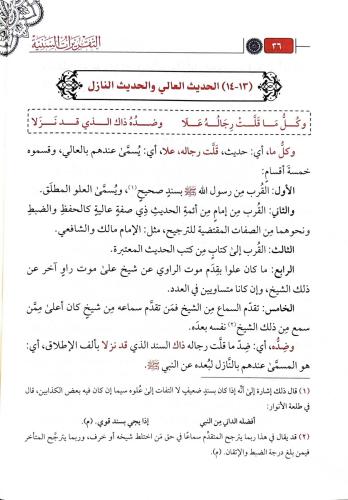 ٣٦
التقديرات السنية
(١٣-١٤) الحديث العالي والحديث النازل
وكُلُّ مَا قَلَّتْ رِجَالُهُ عَلا وضدُهُ ذاك الذي قد نَزَلا
وكل ما، أي: حديث، قَلَّت رجاله، علا، أي: يُسمَّىٰ عندهم بالعالي، وقسموه
خمسة أقسام:
الأول: القُرب مِن رسول الله ﷺ بسندٍ صحيحٍ(١)، ويُسمَّىٰ العلو المطلق.
والثاني: القُرب مِن إمام مِن أئمةِ الحديثِ ذِي صفةٍ عاليةٍ كالحفظِ والضبطِ
ونحوهما مِن الصفات المقتضية للترجيح، مثل: الإمام مالك والشافعي.
الثالث: القُرب إلىٰ كتابٍ مِن كتب الحديث المعتبرة.
الرابع: ما كان علوا بقِدَم موت الراوي عن شيخ علىٰ موت راوٍ آخر عن
ذلك الشيخ، وإن كانا متساويين في العدد.
الخامس: تقدّم السماع مِن الشيخ فمَن تقدَّم سماعه مِن شيخ كان أعلىٰ مِمَّن
سمع مِن ذلك الشيخ(٢) نفسه بعدَه.
وضِدُّه، أي: ضِدّ ما قلَّت رجاله ذاك السند الذي قد نزلا بألف الإطلاق، أي:
هو المسمَّىٰ عندهم بالنَّازل لبُعده عن النبي ﷺ.
(١) قال ذلك إشارة إلىٰ أنَّه إذا كان بسندٍ ضعيفٍ لا التفات إلىٰ عُلوه سيما إن كان فيه بعض الكذابين، قال
في طلعة الأنوار:
أفضله الداني مِن النبي إذا يجي بسند قوي. (م).
(٢) قد يقال في هذا ربما يترجح المتقدِّم سماعًا في حق مَن اختلط شيخه أو خرف، وربما يترجَّح المتأخر
فيمن بلغ درجة الضبط والإتقان. (م).